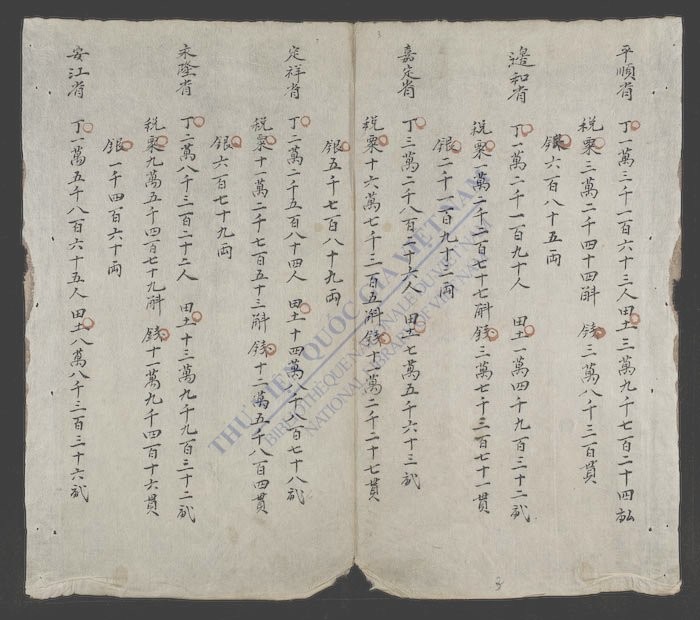 平順省 丁一萬三千一百六十三人田土三萬九千七百二十四畝
稅粟二萬二千四十四斛 錢三萬八千三百貫
銀六百八十五両
邊和省 丁一萬二千一百九十人 田土一萬四千九百三十二畝
稅粟一萬二千二百七十七斛 錢三萬七千三百七十一貫
銀二千一百九十三両
嘉定省 丁三萬二千八百二十六人 田土七萬五千六十三畝
稅粟十六萬七千三百五斛 錢十一萬二千二十七貫
銀五千七百八十九両
定祥省 丁二萬二千五百八十四人 田土十四萬八千八百七十八畝
稅粟十一萬二千七百五十三斛 錢十二萬五千八百四貫
銀六百七十九両
永隆省 丁二萬八千三百二十二人 田土十三萬九千九百三十二畝
稅粟九萬五千四百七十九斛 錢十一萬九千四百十六貫
銀一千四百六十両
安江省 丁一萬五千八百六十五人 田土八萬八千三百三十六畝
THƯ VIỆN QUỐC GIA VIỆT NAM
BIBLIOTHÈQUE NATIONALE DU VIETNAM
NATIONAL LIBRARY OF VIETNAM